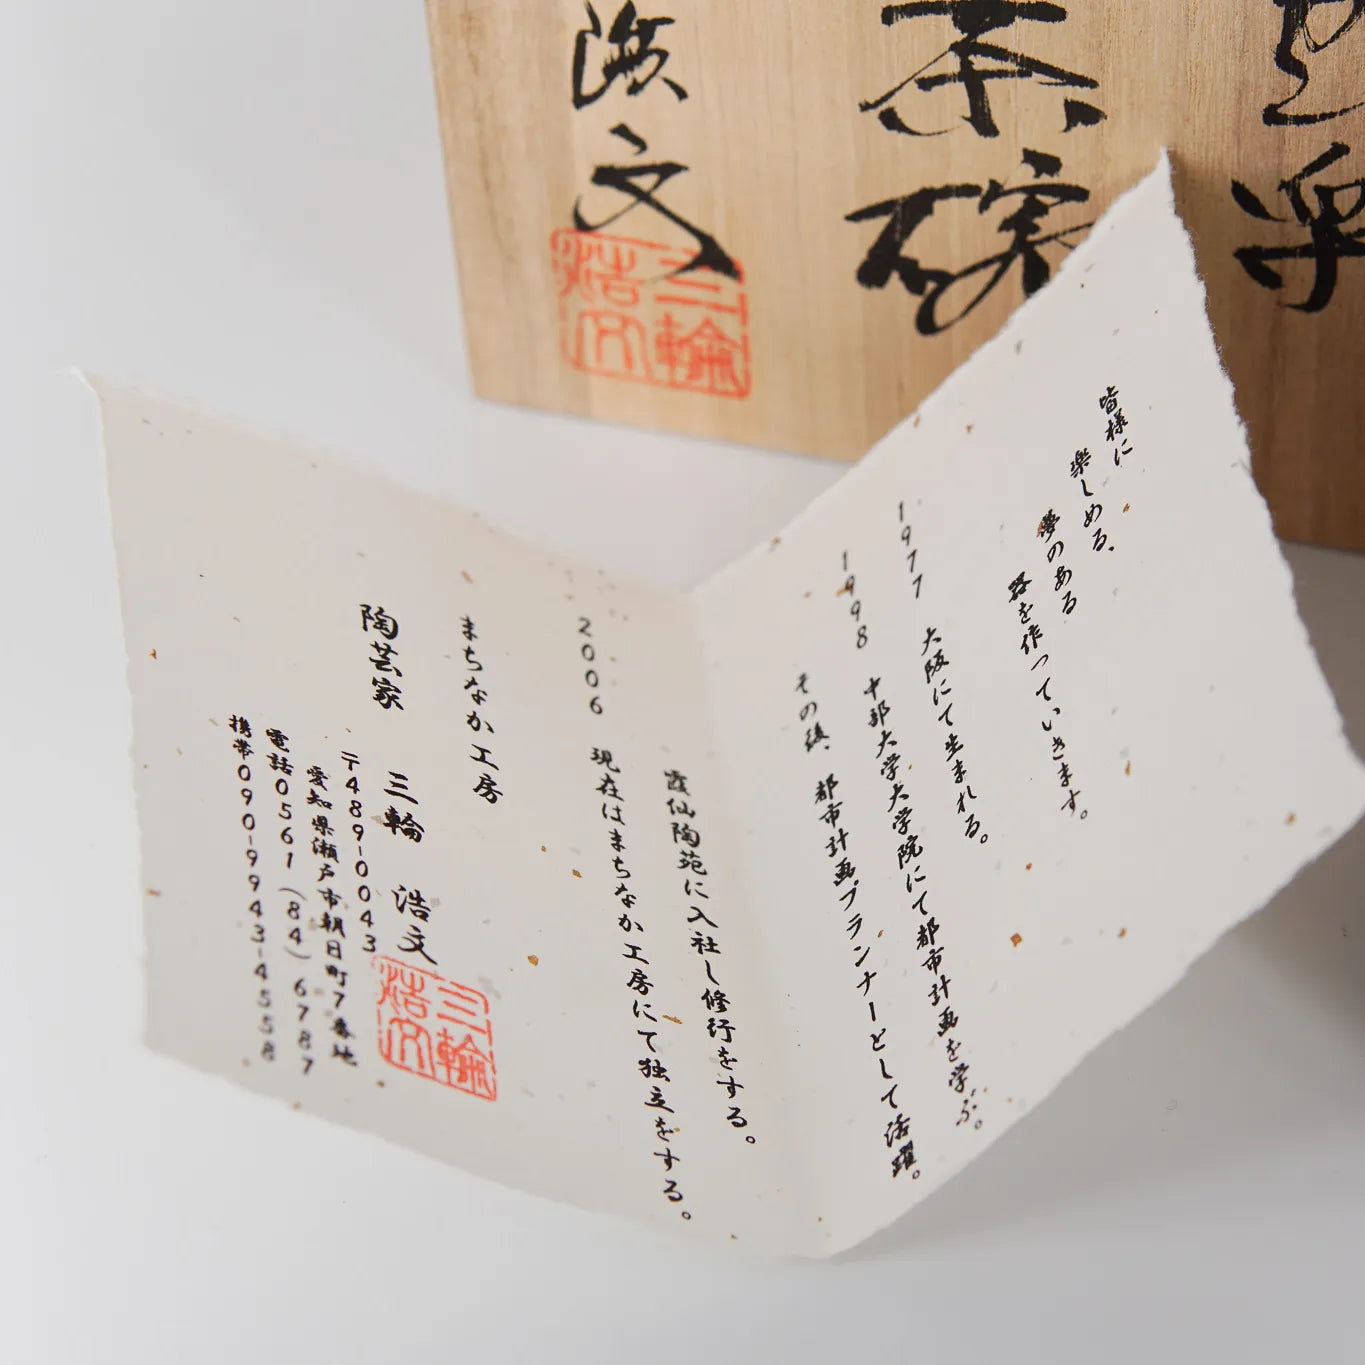 茶碗
浩文
三輪
浩文
皆様に
楽しめる、
夢のある
器を作っていきます。
1977 大阪にて生まれる。
1998 中部大学大学院にて都市計画を学ぶ。
その後、都市計画プランナーとして活躍。
霞仙陶苑に入社し修行をする。
2006 現在はまちなか工房にて独立をする。
まちなか工房
陶芸家 三輪 浩文
三輪
浩文
〒489-0043
愛知県瀬戸市朝日町7番地
電話0561(84)6787
携帯090-9943-4558